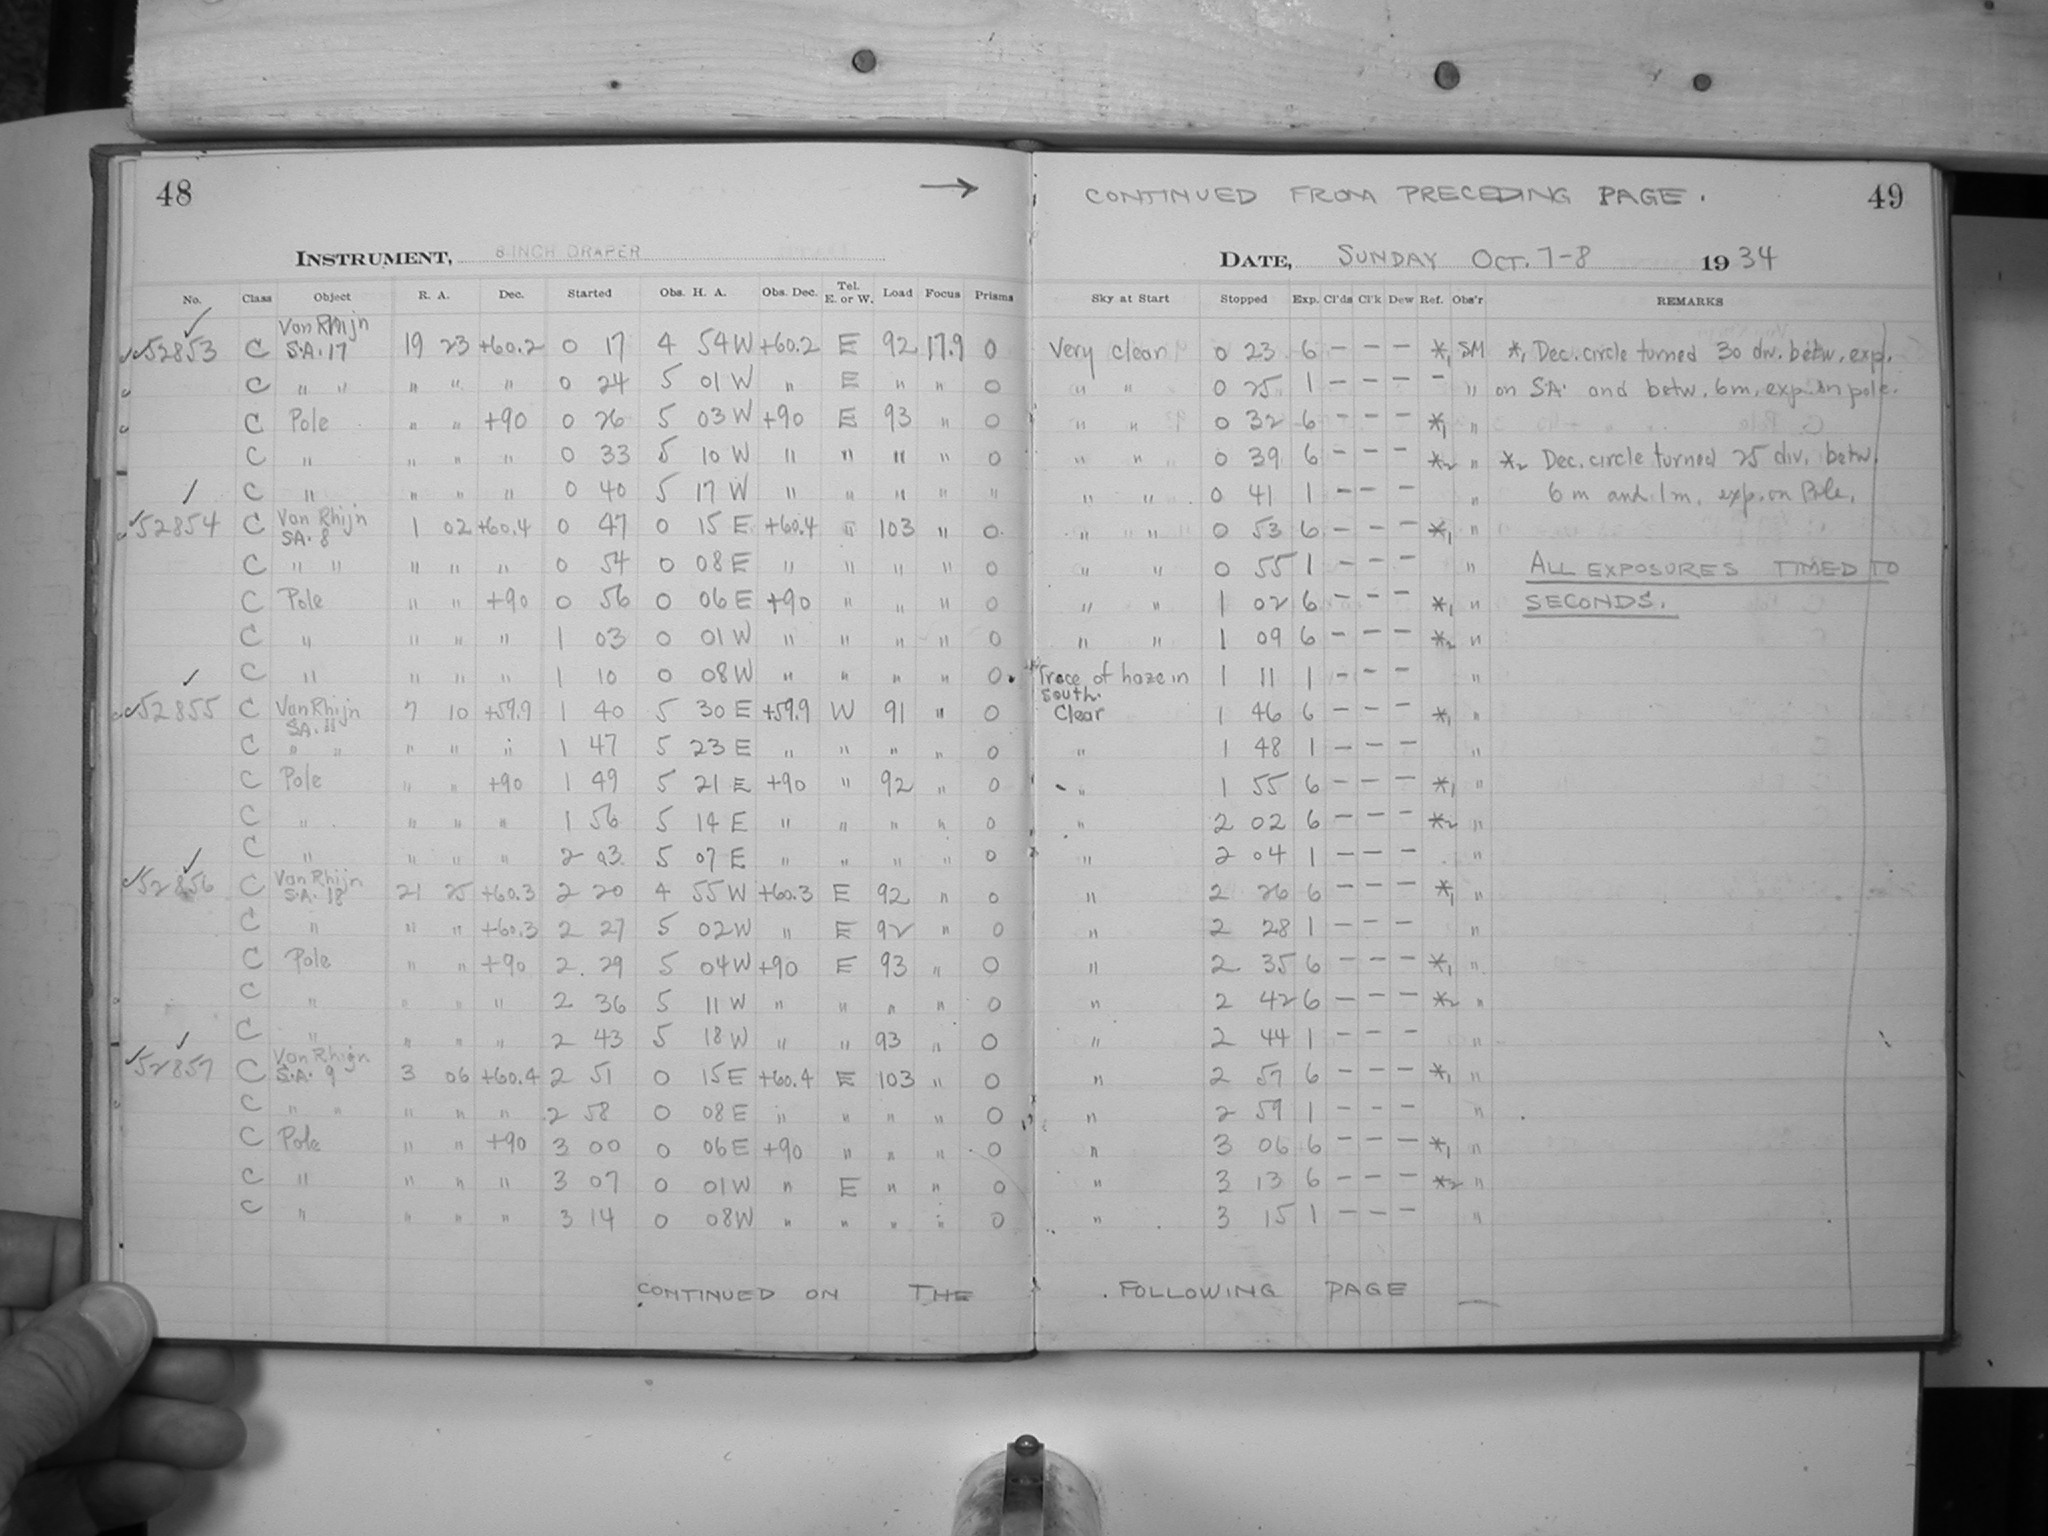 48 → CONTINUED FROM PRECEDING PAGE. 49
INSTRUMENT, 8-INCH DRAPER DATE, SUNDAY OCT. 7-8 1934
No. Class Object R. A. Dec. Started Obs. H. A. Obs. Dec. Tel. E. or W. Load Focus Prisms Sky at Start Stopped Exp. Cl'ds Cl'k Dew Ref. Obs'r REMARKS
✓52853 C Van Rhijn S.A. 17 19 23 +60.2 0 17 4 54W +60.2 E 92 17.9 0 Very clear 0 23 6 – – – *1 SM *1 Dec. circle turned 30 div. betw. exp.
C " " " " " 0 24 5 01 W " E " " 0 " " 0 25 1 – – – – " on S.A. and betw. 6m. exp. on pole.
C Pole " " +90 0 26 5 03 W +90 E 93 " 0 " " 0 32 6 – – – *1 "
C " " " " 0 33 5 10 W " " " " 0 " " 0 39 6 – – – *2 " *2 Dec. circle turned 25 div. betw.
C " " " " 0 40 5 17 W " " " " " " " 0 41 1 – – – " 6 m and 1 m. exp. on Pole.
✓52854 C Van Rhijn SA. 8 1 02 +60.4 0 47 0 15 E +60.4 " 103 " 0 " " 0 53 6 – – – *1 "
C " " " " " 0 54 0 08 E " " " " 0 " " 0 55 1 – – – " ALL EXPOSURES TIMED TO
C Pole " " +90 0 56 0 06 E +90 " " " 0 " " 1 02 6 – – – *1 " SECONDS.
C " " " " 1 03 0 01 W " " " " 0 " " 1 09 6 – – – *2 "
C " " " " 1 10 0 08 W " " " " 0 Trace of haze in south. 1 11 1 – – – "
✓52855 C Van Rhijn SA. 11 7 10 +59.9 1 40 5 30 E +59.9 W 91 " 0 Clear 1 46 6 – – – *1 "
C " " " " " 1 47 5 23 E " " " " 0 " 1 48 1 – – – "
C Pole " " +90 1 49 5 21 E +90 " 92 " 0 " 1 55 6 – – – *1 "
C " " " " 1 56 5 14 E " " " " 0 " 2 02 6 – – – *2 "
C " " " " 2 03 5 07 E " " " " 0 " 2 04 1 – – – "
✓52856 C Van Rhijn S.A. 18 21 25 +60.3 2 20 4 55 W +60.3 E 92 " 0 " 2 26 6 – – – *1 "
C " " " +60.3 2 27 5 02 W " E 92 " 0 " 2 28 1 – – – "
C Pole " " +90 2 29 5 04 W +90 E 93 " 0 " 2 35 6 – – – *1 "
C " " " " 2 36 5 11 W " " " " 0 " 2 42 6 – – – *2 "
C " " " " 2 43 5 18 W " " 93 " 0 " 2 44 1 – – – "
✓52857 C Van Rhijn S.A. 9 3 06 +60.4 2 51 0 15 E +60.4 E 103 " 0 " 2 57 6 – – – *1 "
C " " " " " 2 58 0 08 E " " " " 0 " 2 59 1 – – – "
C Pole " " +90 3 00 0 06 E +90 " " " 0 " 3 06 6 – – – *1 "
C " " " " 3 07 0 01 W " E " " 0 " 3 13 6 – – – *2 "
C " " " " 3 14 0 08 W " " " " 0 " 3 15 1 – – – "
CONTINUED ON THE FOLLOWING PAGE